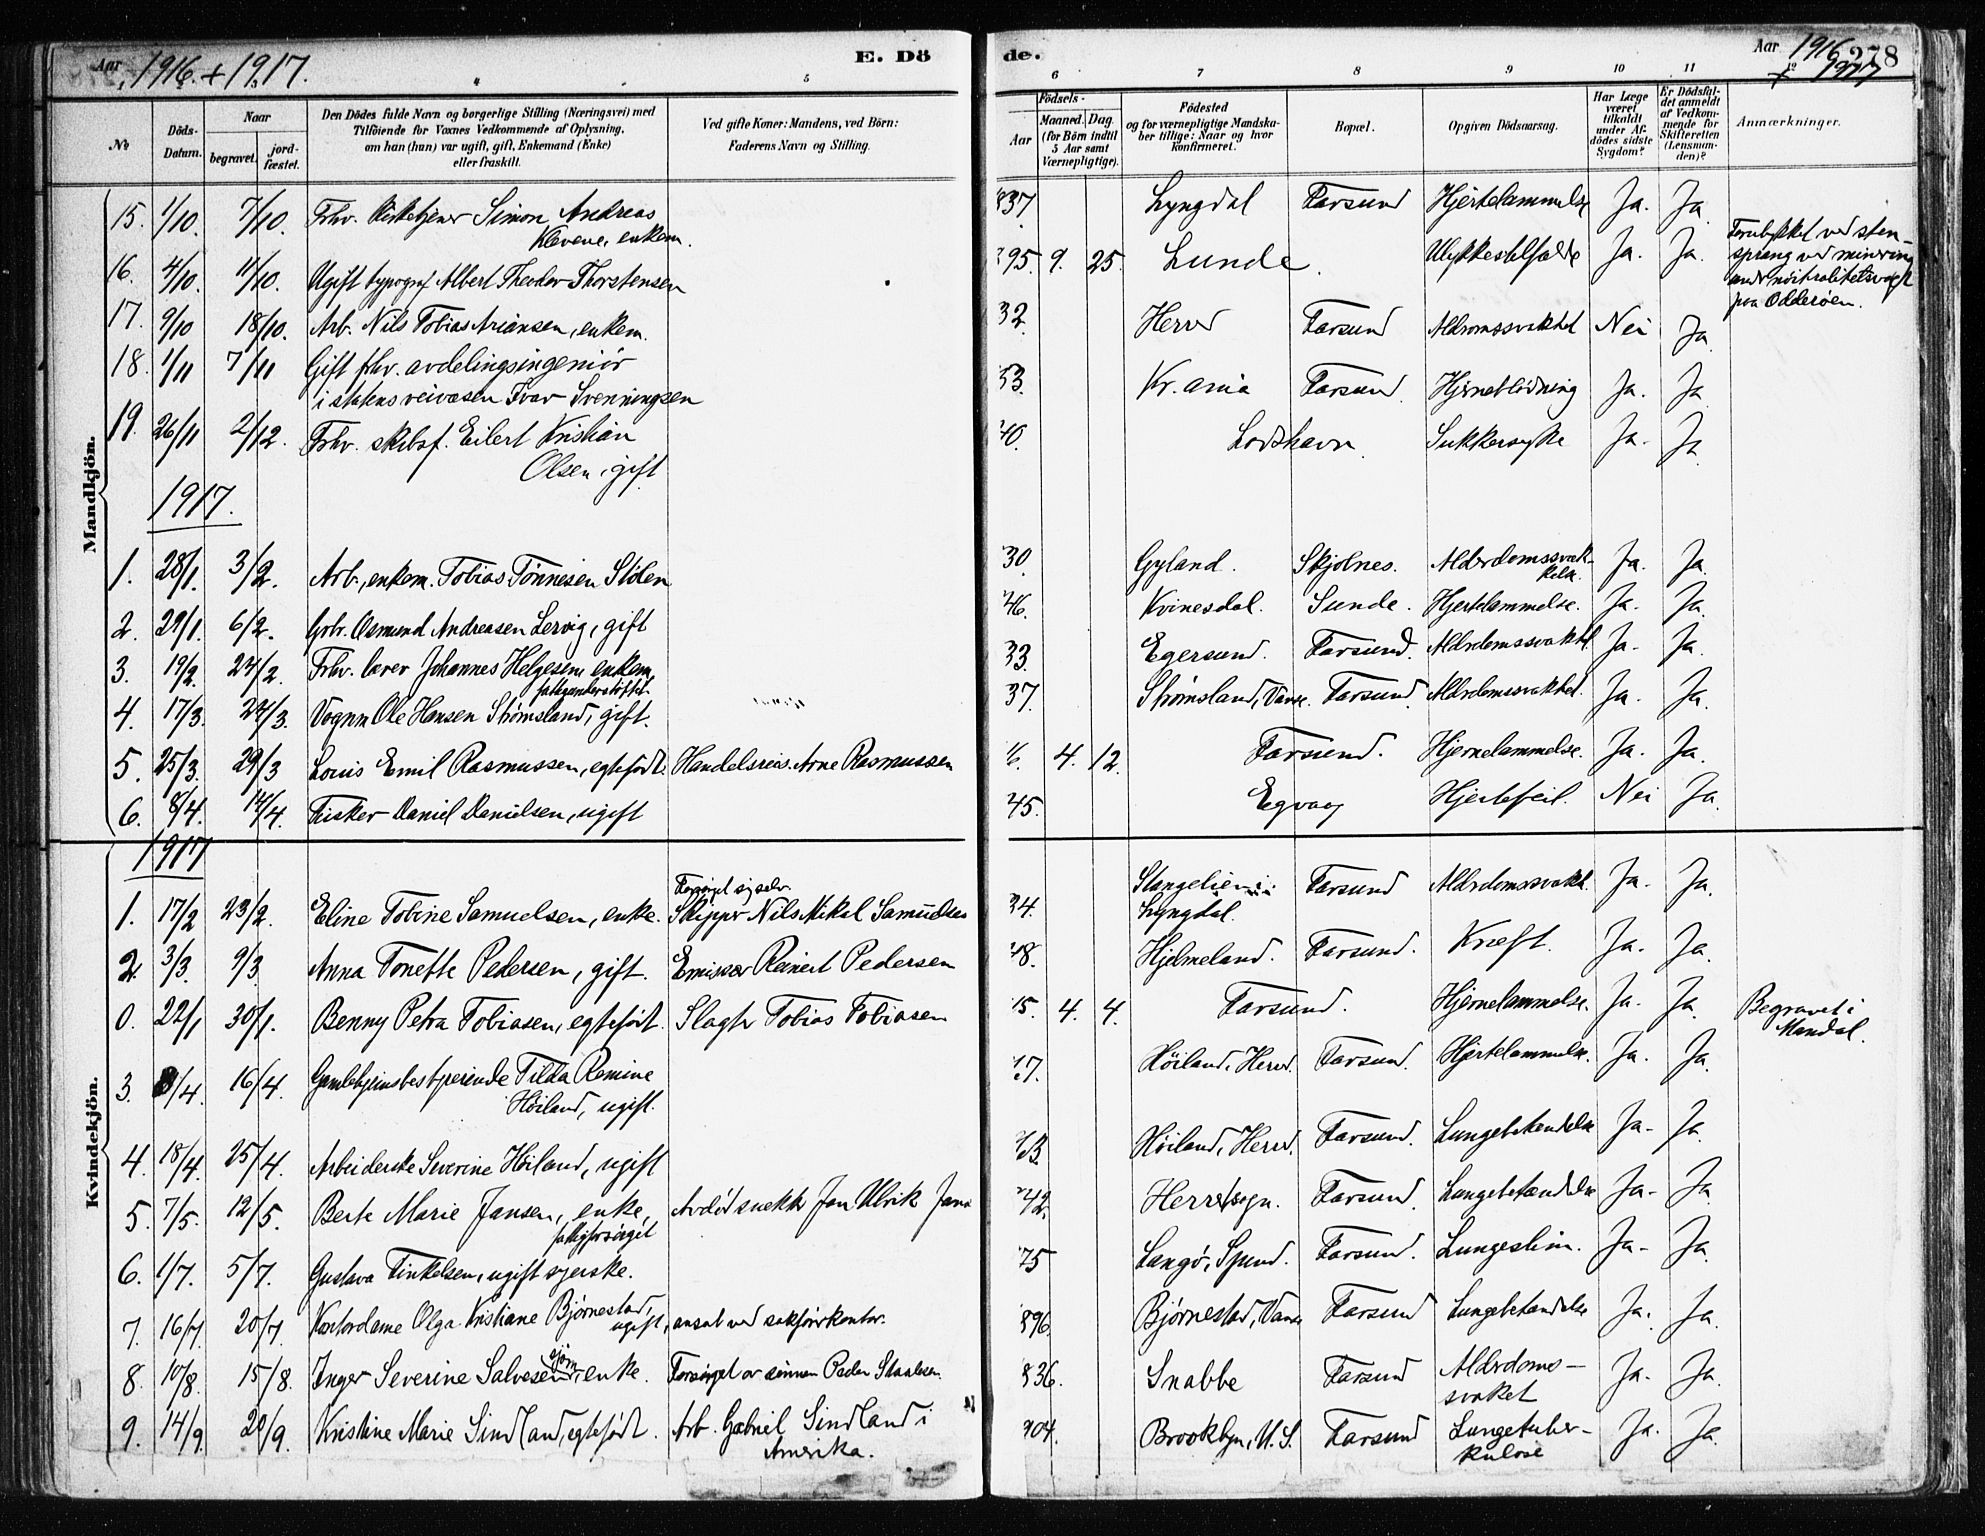 Aar 1916. + 1917.
E. Dö
de.
Aar 1916 + 1917
278
4 5 6 7 8 9 10 11 12
No
Döds-Datum.
Naar
begravet.
jordfæstet.
Den Dödes fulde Navn og borgerlige Stilling (Næringsvei) med
Tilföiende for Voxnes Vedkommende af Oplysning,
om han (hun) var ugift, gift, Enkemand (Enke)
eller fraskilt.
Ved gifte Koner: Mandens, ved Börn:
Faderens Navn og Stilling.
Födsels-
Aar
Maaned.
Dag
(for Börn indtil 5 Aar samt Værnepligtige).
Födested
og for værnepligtige Mandskaber tillige: Naar og hvor konfirmeret.
Bopæl.
Opgiven Dödsaarsag.
Har Læge været tilkaldt under Afdödes sidste Sygdom?
Er Dödsfaldet anmeldt af Vedkommende for Skifteretten (Lensmanden)?
Anmærkninger.
Mandkjön.
15. 1/10. 7/10. Frhv. Kirketjener Simon Andreas
Klevene, enkem. 837 Lyngdal Farsund Hjertelammelse Ja. Ja.
16. 4/10. 11/10. Ugift typograf Albert Theodor Thorstensen 95. 9. 25. Lunde. Ulykkestilfælde Ja. Ja. ved sten-
sprang ved minering
under nøitralitetsvagt
paa Odderøen.
17. 9/10 18/10. Arb. Nils Tobias Ariansen, enkem. 32. Herred Farsund Nei Ja.
18. 1/11 7/11 Gift frhv. avdelingsingeniör
i statens veivæsen Ivar Svenningsen 53. Kr.ania Farsund. Hjerneblödning Ja. Ja.
19. 26/11 2/12. Frhv. skibsf. Eilert Kristian
Olsen, gift 40. Loshavn. Sukkersyke Ja. Ja
1917.
1. 28/1. 3/2. Arb., enkem. Tobias Tönnesen Stölen 30. Gyland. Skjolnes. Alderdomssvak-
kelse. Ja. Ja.
2. 29/1. 6/2. Grbr. Osmund Andreasen Lervig, gift 46. Kvinesdal. Sunde. Hjertelammelse. Ja. Ja.
3. 19/2. 24/2. Frhv. lærer Johannes Helgesen, enkem.
fattigunderstöttet. 33. Egersund. Farsund. Ja. Ja.
4. 17/3. 24/3. Vognm Ole Hansen Strömsland, gift. 37. Strömsland, Vanse. Farsund. Ja. Ja.
5. 25/3. 29/3 Louis Emil Rasmussen, egtefödt. Handelsreis. Arne Rasmussen 16. 4. 12. Farsund. Hjernelammelse. Ja. Ja.
6. 8/4. 14/4. Fisker Daniel Danielsen, ugift 45. Egvaag Hjertefeil. Nei Ja.
Kvindekjön.
1917
1. 17/2 23/2. Eline Tobine Samuelsen, enke. Forsörget sig selv.
Skipper Nils Mikal Samuelsen 34. Stangelien i
Lyngdal. Farsund Ja. Ja.
2. 3/3. 9/3. Anna Tonette Pedersen, gift. Emissær Reinert Pedersen 48. Hjelmeland. Farsund. Kreft. Ja. Ja.
0. 22/1 30/1. Benny Petra Tobiasen, egtefödt. Slagter Tobias Tobiasen 15. 4. 4. Farsund. Hjernelammelse. Ja. Ja. Begravet i
Mandal.
3. 8/4. 16/4. Gamlehjemsbestyrerinde Tilda Romine
Höiland, ugift. Höiland, Herred. Farsund. Hjertelammelse. Ja. Ja.
4. 18/4. 25/4. Arbeiderske Severine Höiland, ugift 63. Höiland, Herred. Farsund. Lungebetændelse Ja. Ja.
5. 7/5. 12/5. Berte Marie Jansen, enke,
fattigforsörget Avdöd snekker Jan Ulrik Jansen 42. Herred sogn. Farsund. Lungebetændelse Ja. Ja.
6. 1/7. 5/7. Gustava Finkelsen, ugift syerske. 75 Langö, Spind. Farsund. Ja. Ja.
7. 16/7 20/7. Kontordame Olga Kristiane Björnestad,
ugift, ansat ved sakförerkontor. 896. Björnestad, Vanse Farsund Lungebetændelse Ja. Ja.
8. 10/8. 15/8. Inger Severine Salvesen, enke. Forsörget av sönnen Peder Staalesen. 836. Snabbe Farsund Alderdoms-
svakhet Ja. Ja.
9. 14/9. 20/9. Kristine Marie Sindland, egtefödt. Arb. Gabriel Sindland i
Amerika. 904. Brooklyn, U.S. Farsund Lungetuber-
kulose Ja. Ja.